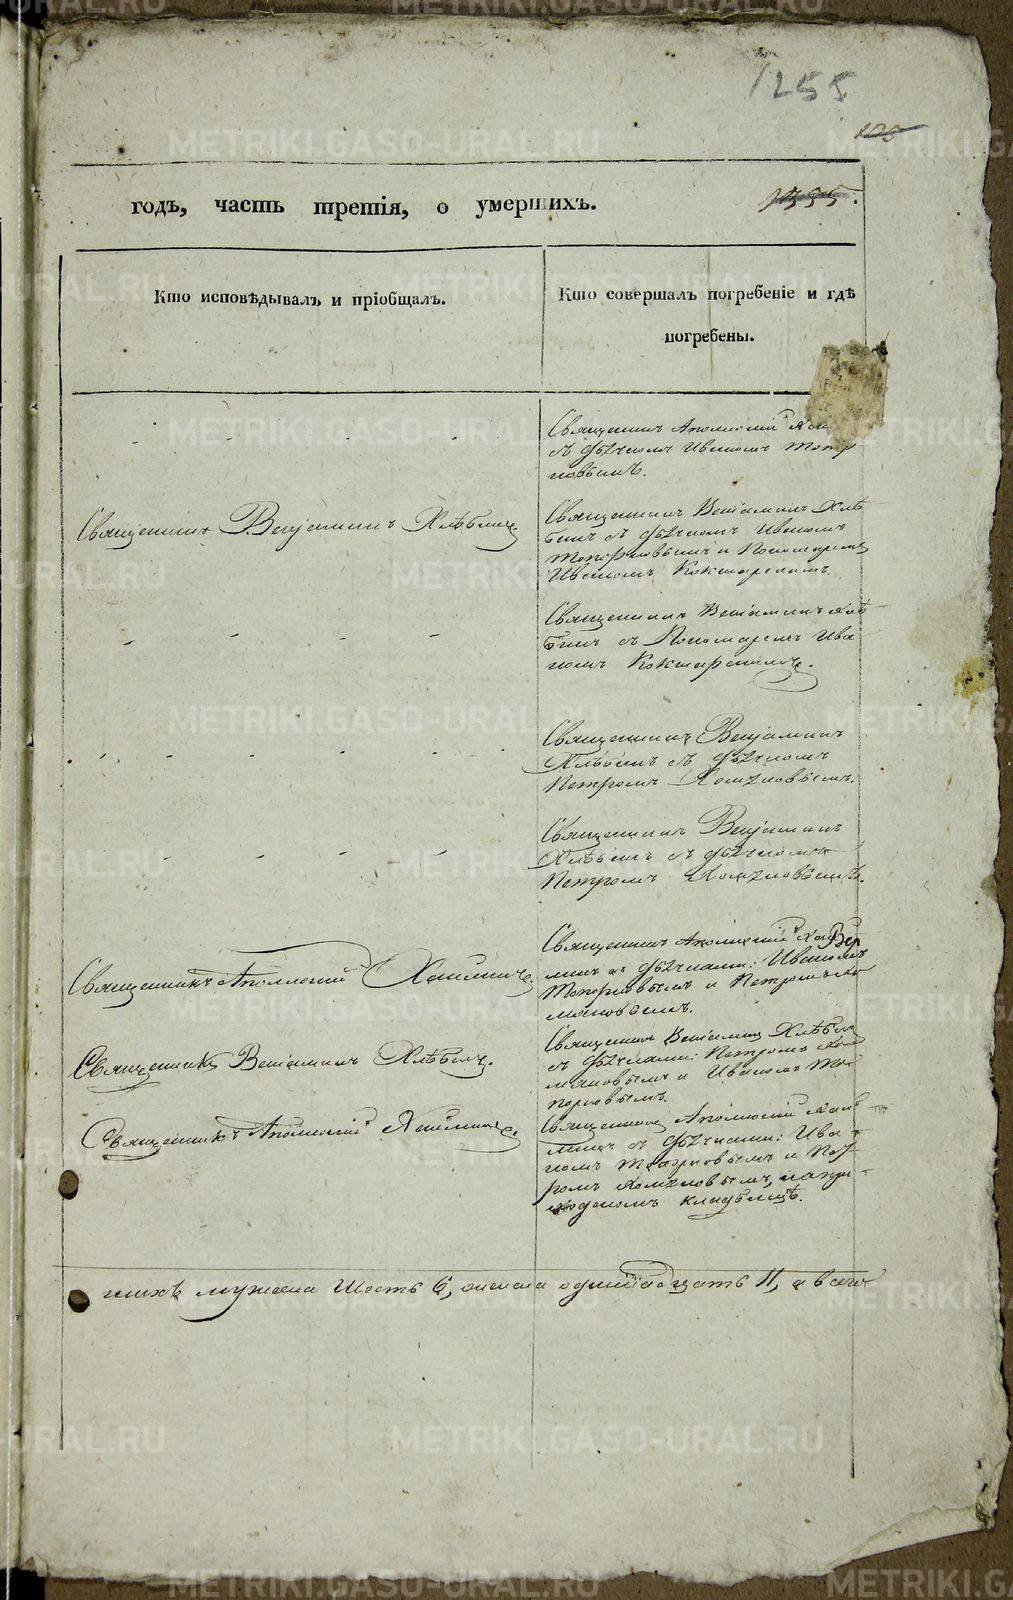 1255
годъ, часть третія, о умершихъ.
1395.
Кто исповѣдывалъ и пріобщалъ.
Кто совершалъ погребеніе и гдѣ
погребены.
Священникъ Аполлоній
съ дьячкомъ Иваномъ Топор
новымъ.
Священникъ Веніаминъ Хлѣбинъ
Священникъ Веніаминъ Хлѣ
бинъ съ дьячкомъ Иваномъ
Топорновымъ и Пономаремъ
Иваномъ Кокшарскимъ.
Священникъ Веніаминъ Хлѣ
бинъ съ Пономаремъ Ива
номъ Кокшарскимъ.
Священникъ Веніаминъ
Хлѣбинъ съ дьячкомъ
Петромъ
Священникъ Веніаминъ
Хлѣбинъ съ дьячкомъ
Петромъ
Священникъ Аполлоній
Священникъ Аполлоній
съ дьячками: Иваномъ
Топорновымъ и Петромъ
Священникъ Веніаминъ Хлѣбинъ.
Священникъ Веніаминъ Хлѣбинъ
съ дьячками: Петромъ
и Иваномъ То
порновымъ.
Священникъ Аполлоній
Священникъ Аполлоній
съ дьячками: Ива
номъ Топорновымъ и Пет
ромъ на при
ходскомъ кладбищѣ.
мужеска шесть 6, женска одиннадцать 11, а всего
METRIKI.GASO-URAL.RU